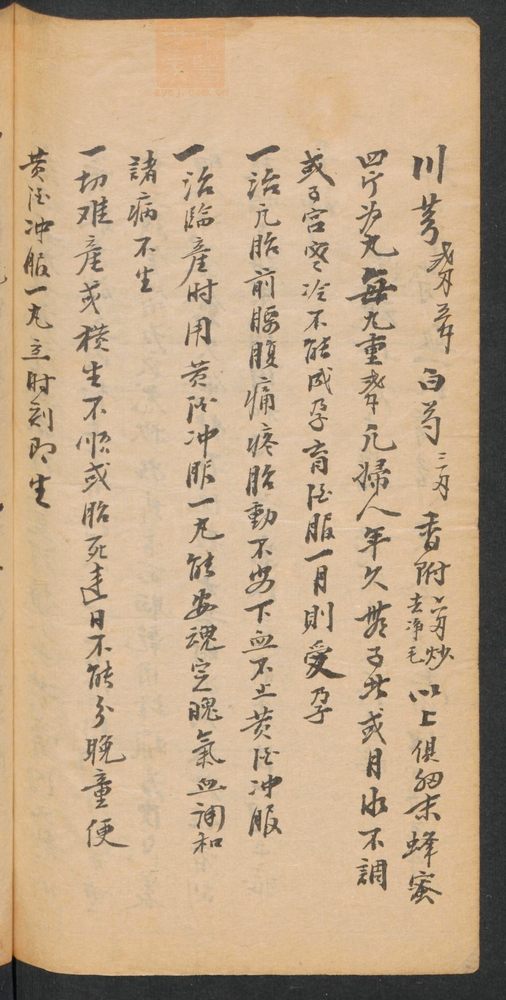 川芎 白芍三两 香附二两炒去净毛 以上俱細末蜂蜜
四斤为丸每丸重 凡婦人年久無子北或月水不調
或子宮寒冷不能成孕育酒服一月則受孕
一治凡胎前腰腹痛疼胎動不安下血不止黄酒冲服
一治臨產时用黄酒冲服一丸能安魂定魄氣血調和
諸病不生
一切难產或橫生不順或胎死連日不能分晚童便
黄酒冲服一丸立时刻即生